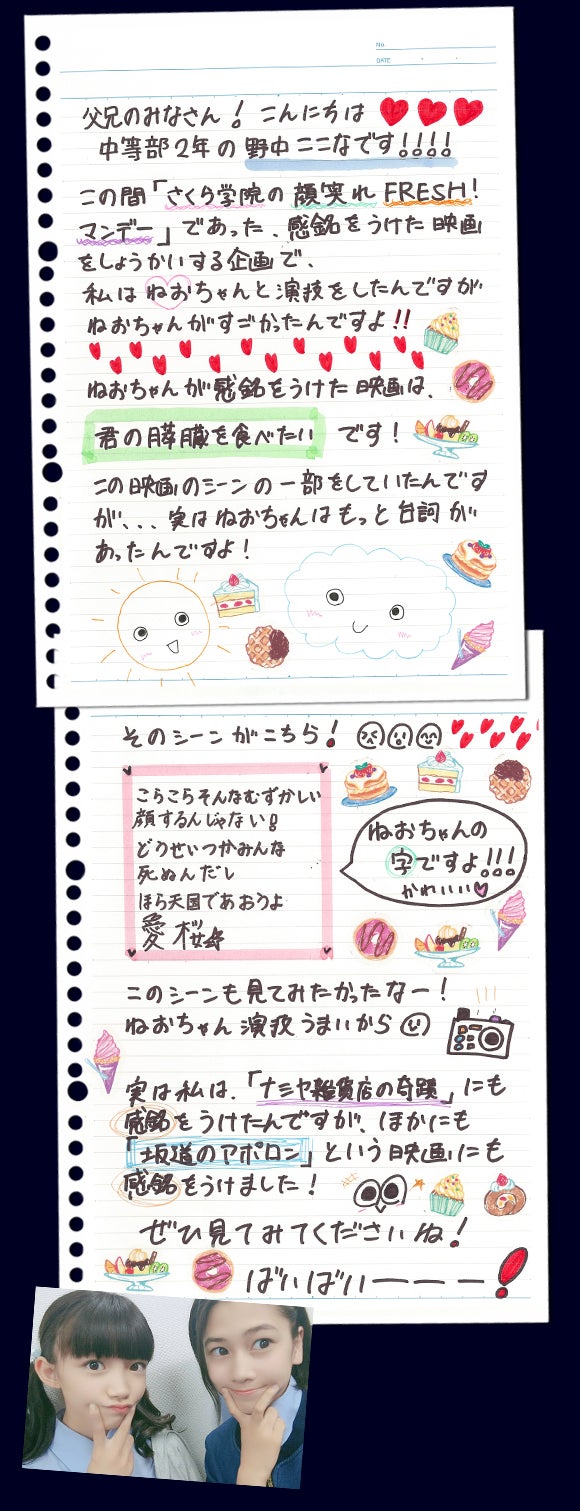 No.
DATE
父兄のみなさん！こんにちは
中等部2年の野中ここなです!!!!
この間「さくら学院の顔笑れFRESH!
マンデー」であった、感銘をうけた映画
をしょうかいする企画で、
私はねおちゃんと演技をしたんですが
ねおちゃんがすごかったんですよ!!
ねおちゃんが感銘をうけた映画は、
君の膵臓を食べたい です！
この映画のシーンの一部をしていたんです
が、、、実はねおちゃんはもっと台詞が
あったんですよ！
そのシーンがこちら！
こらこらそんなむずかしい
顔するんじゃない！
どうせいつかみんな
死ぬんだし
ほら天国であおうよ
愛桜
ねおちゃんの
字ですよ!!!
かわいい
このシーンも見てみたかったなー！
ねおちゃん演技うまいから
実は私は、「ナミヤ雑貨店の奇蹟」にも
感銘をうけたんですが、ほかにも
「坂道のアポロン」という映画にも
感銘をうけました！
ぜひ見てみてくださいね！
ばいばいーーー！